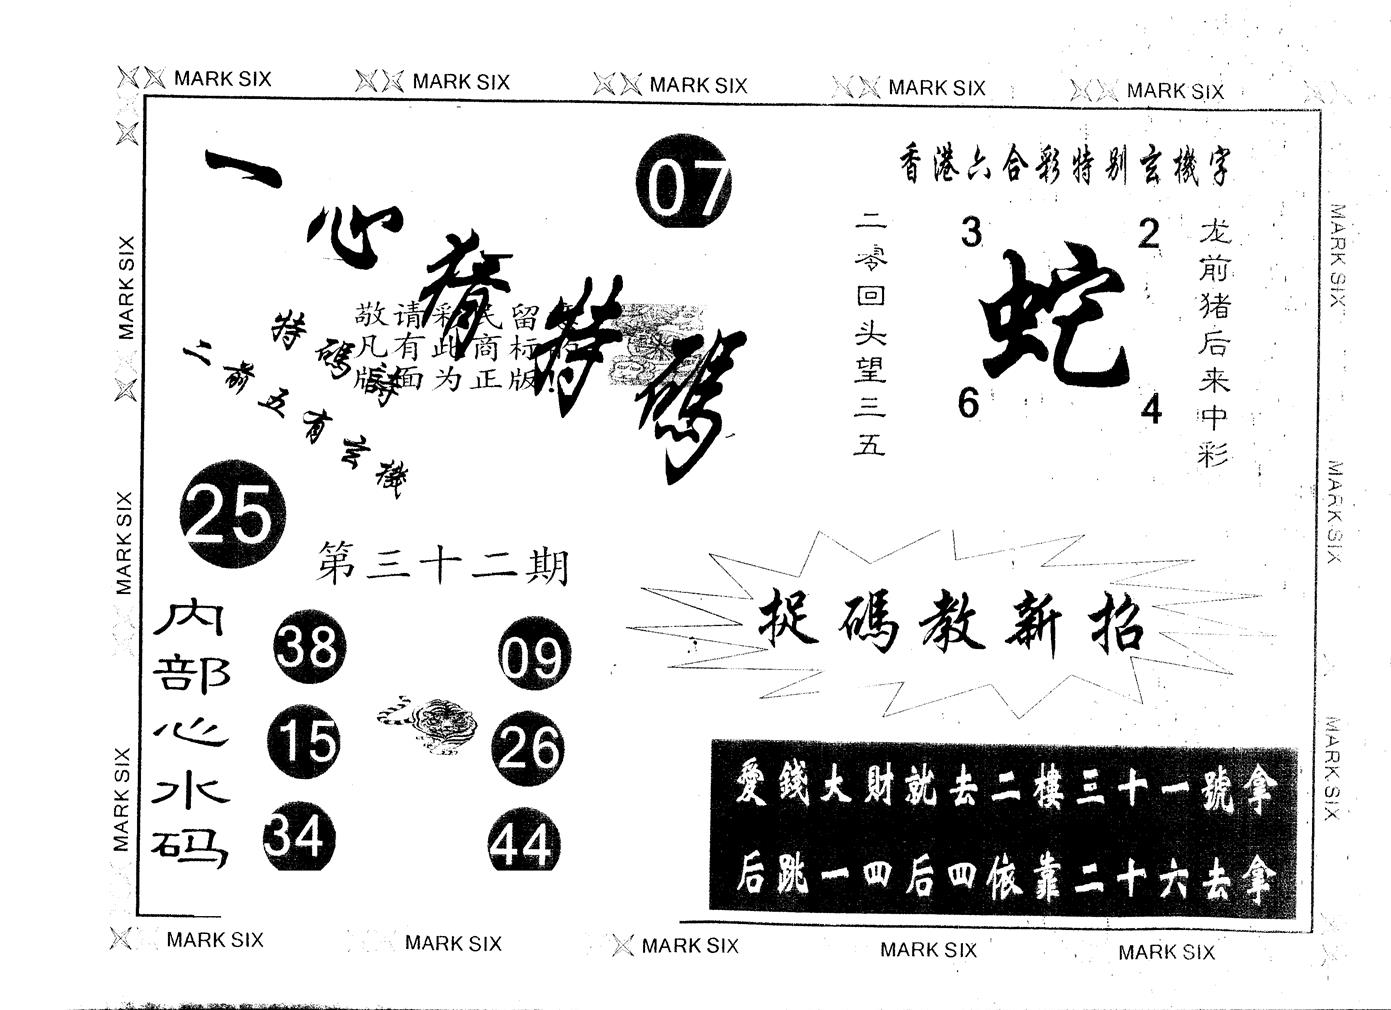 MARK SIX MARK SIX MARK SIX MARK SIX MARK SIX
一心猜特碼
07
香港六合彩特别玄機字
二零回头望三五
3 2
蛇
6 4
龙前猪后来中彩
敬请彩民留意
凡有此商标的
版面为正版!
特碼詩
二前五有玄機
25
第三十二期
内部心水码
38 09
15 26
34 44
捉碼教新招
愛錢大財就去二樓三十一號拿
后跳一四后四依靠二十六去拿
MARK SIX
MARK SIX
MARK SIX
MARK SIX
MARK SIX
MARK SIX
MARK SIX MARK SIX MARK SIX MARK SIX MARK SIX